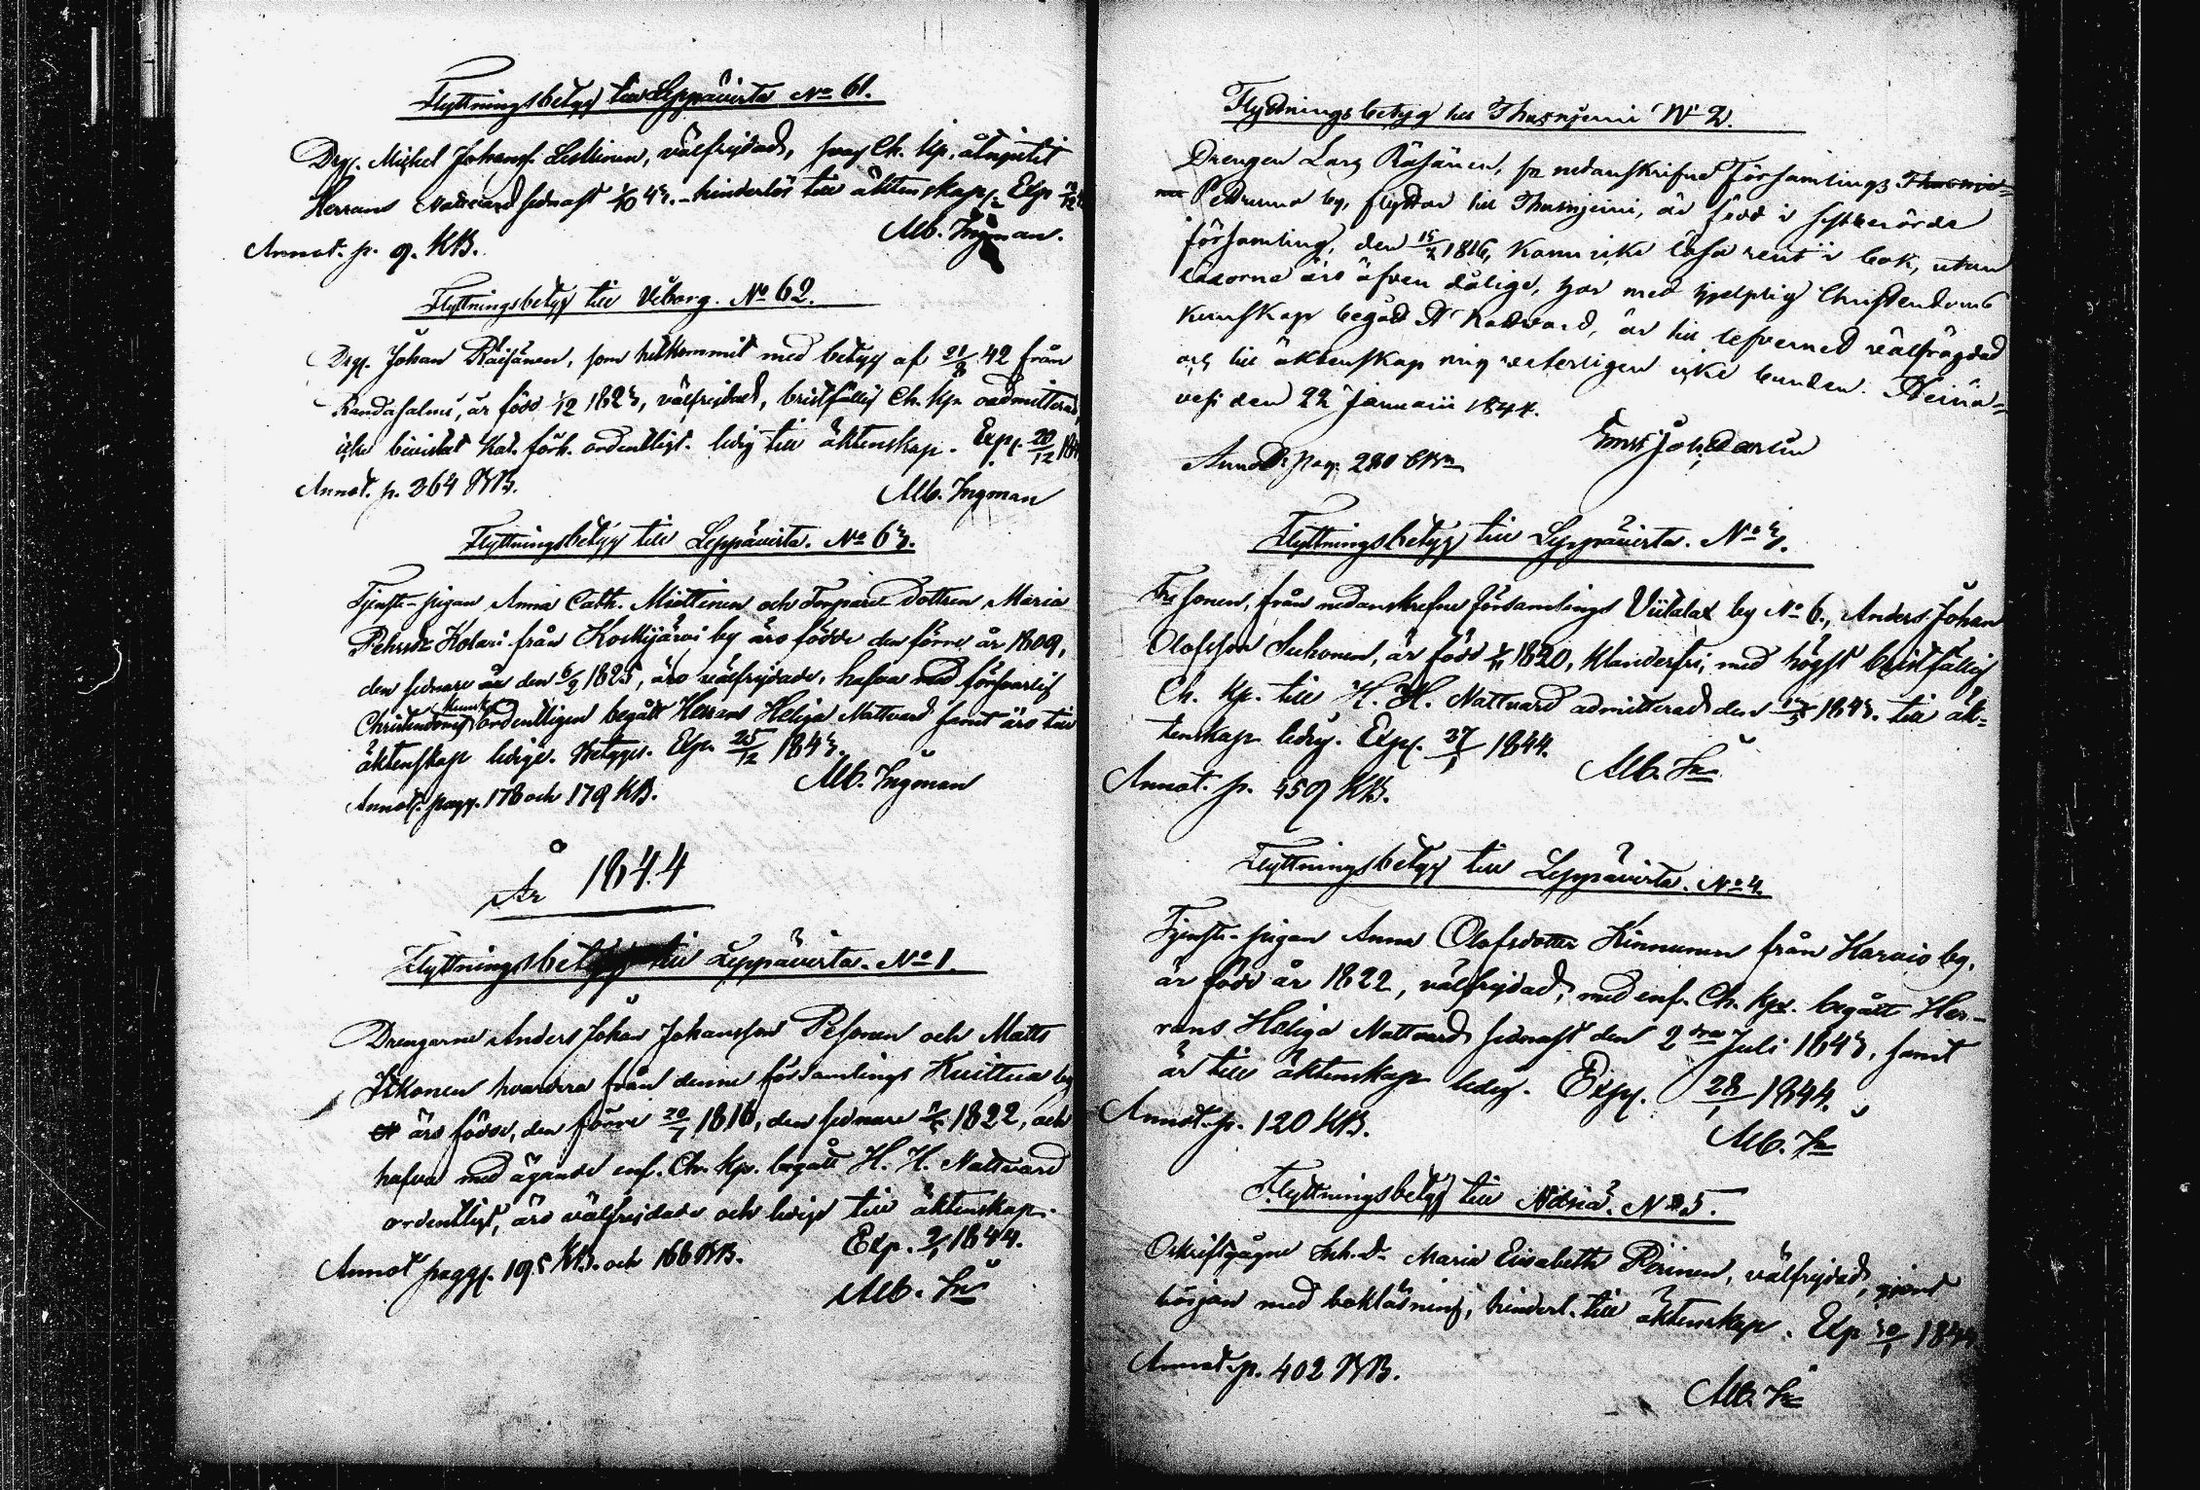 Flyttningsbetyg till Leppävirta No 61.
Drg. Michel Johansf. Leskinen, välfrejdad, svag Ch. kp. åtnjutit
Herrans Nattvard sednast 1/10 43. hinderlös till äktenskap. Exp
Alb. Ingman.
Annot. p. 9. KB.
Flyttningsbetyg till Viborg. No 62.
Drg. Johan Räisänen, som hitkommit med betyg af 21/8 42 från
Randasalmi, är född 1/12 1823, välfrejdad, bristfällig Ch. kp. oadmitterad,
icke bivistat Kat. förh. ordentligt. ledig till äktenskap. Exp. 20/12
Annot. p. 264 KB.
Alb. Ingman
Flyttningsbetyg till Leppävirta. No 63.
Tjenste-pigan Anna Cath. Miettinen och Torpare dottren Maria
Pehrsdr Kolari från Koskijärvi by äro födde den förra år 1809,
den sednare år den 6/2 1825, äro välfrejdade, hafva med försvarlig
Christendoms kunskap ordentligen begått Herrans Heliga Nattvard samt äro till
äktenskap lediga. Betygar. Exp. 25/12 1843.
Alb. Ingman
Annot. pagg. 178 och 179 KB.
År 1844
Flyttningsbetyg till Leppävirta. No 1.
Drengarne Anders Johan Johansson Pesonen och Matts
Itkonen hvardera från denne församlings Kuittua by
äro födde, den förre 20/7 1816, den sednare 1822, och
hafva med ägande enf. Ch. kp. begått H. H. Nattvard
ordentligt, äro välfrejdade och ledige till äktenskap.
Exp. 2/1 1844.
Annot. pagg. 195 KB. och 166 KB.
Alb. In
Flyttningsbetyg till Thusnjemi No 2.
Drengen Lars Räsänen, fr. nedanskrifne Församlings
Petruma by, flyttar till Thusnjemi, är född i sistberörde
församling, den 15/2 1816, kann icke läsa rent i bok, utan
läxorne äro äfven dålige, har med hjelplig Christendoms
kunskap begått H. Nattvard, är till lefvernet välfrägdad
och till äktenskap mig veterligen icke bunden. Heinä-
vesi den 22 Januarii 1844.
Annot. pag. 280 CBn
Flyttningsbetyg till Leppävirta. No 3.
Trpsonen, från nedanskrefne församlings Viitalax by No 6., Anders Johan
Olofsson Suhonen, är född 1820, klanderfri, med högst bristfällig
Ch. kp. till H. H. Nattvard admitterad den 1843. till äk-
tenskap ledig. Exp. 27/1 1844.
Alb. In
Annot. p. 459 KB.
Flyttningsbetyg till Leppävirta. No 4.
Tjenste-pigan Anna Olofsdotter Kinnunen från Karvio by.
är född år 1822, välfrejdad, med enf. Ch. kp. begått Her-
rans Heliga Nattvard sednast den 2dra Juli 1843, samt
är till äktenskap ledig. Exp. 28/1 1844.
Alb. In
Annot. p. 120 KB.
Flyttningsbetyg till Nilsiä. No 5.
Oskriftgångne Inh. dr Maria Elisabetha Piirinen, välfrejdad, gjort
början med bokläsning, hinderl. till äktenskap. Exp 30/1 1844
Annot. p. 402 KB.
Alb. In